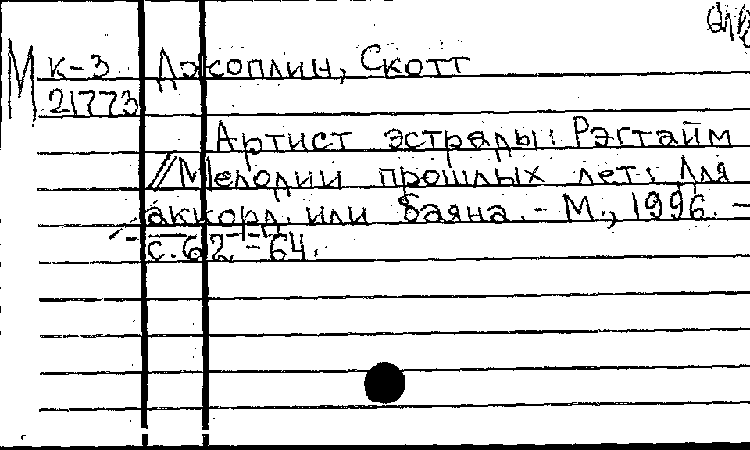 М К-3 Джоплин, Скотт
21773
Артист эстрады: Рэгтайм
// Мелодии прошлых лет: Для
аккорд. или баяна. - М., 1996. -
с. 62 - 64.